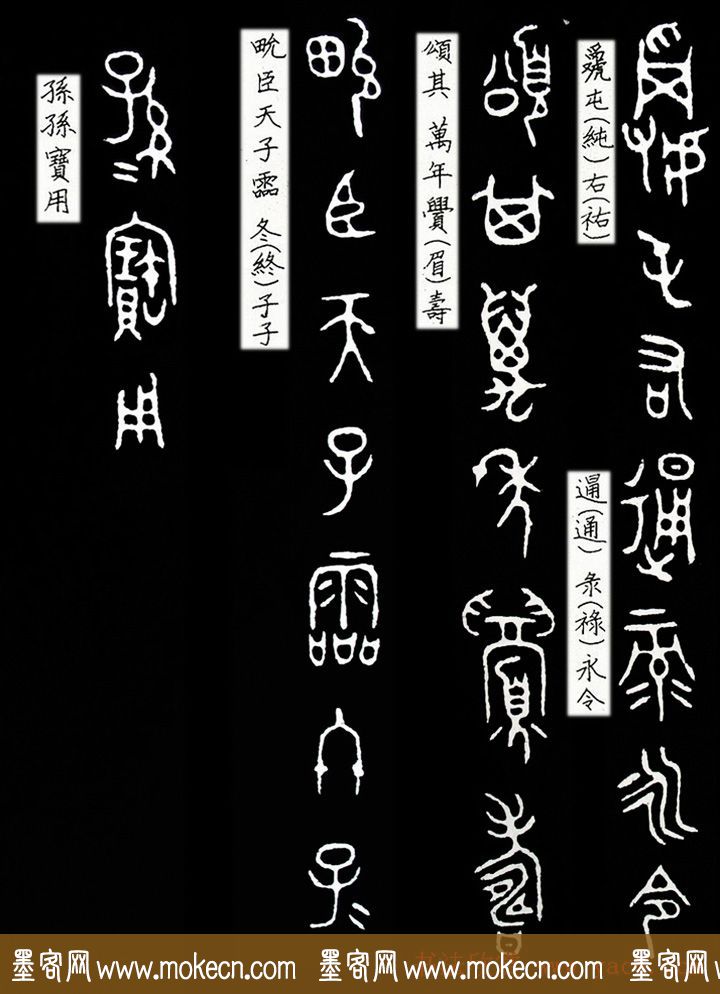 屯(純)右(祐)
(通) 彔(祿)永令
頌其 萬年釁(眉)壽
㽙臣天子霝 冬(終)子子
孫孫寶用
墨客网 www.mokecn.com 墨客网 www.mokecn.com